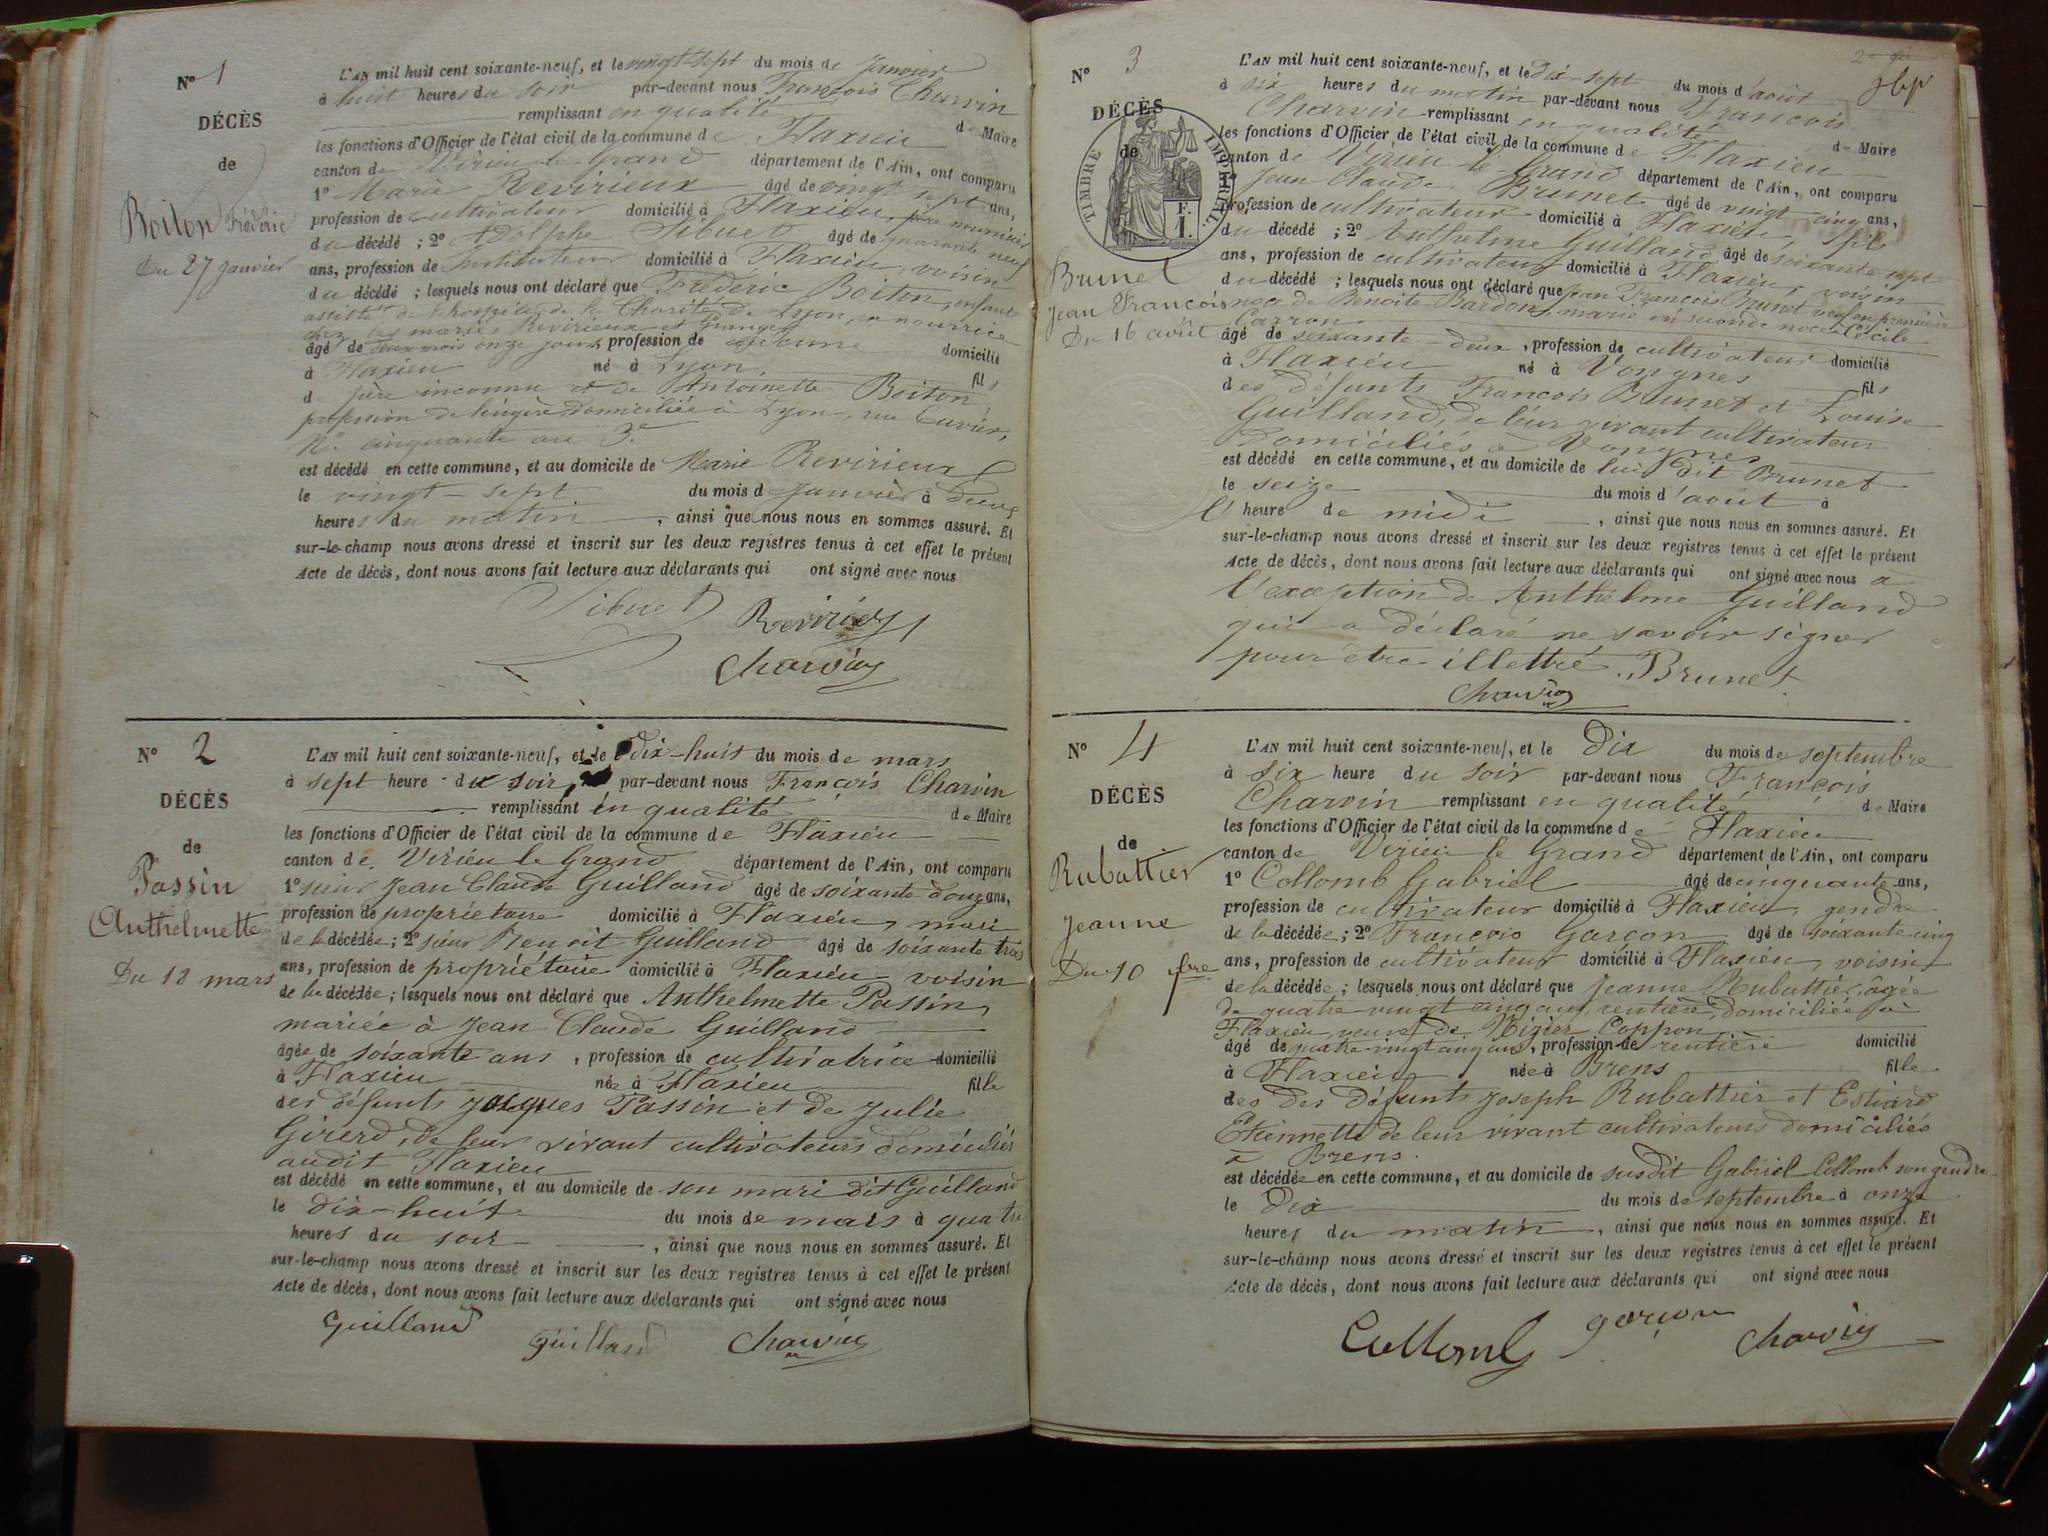 N° 1
DÉCÈS
de
Boiton Frédéric
Du 27 janvier
L'AN mil huit cent soixante-neuf, et le vingt-sept du mois de Janvier
à huit heures du soir par-devant nous François Charvin
remplissant en qualité de Maire
les fonctions d'Officier de l'état civil de la commune de Flaxieu
canton de Virieu-le-Grand département de l'Ain, ont comparu
1° Marie Revirieux âgé de vingt sept ans,
profession de cultivateur domicilié à Flaxieu, père nourricier
du décédé ; 2° Adolphe Sibuet âgé de quarante neuf
ans, profession de Instituteur domicilié à Flaxieu, voisin
du décédé ; lesquels nous ont déclaré que Frédéric Boiton, enfant
assisté de l'hospice de la Charité de Lyon, en nourrice
chez les mariés Revirieux et Granger
âgé de deux mois onze jours, profession de aucune domicilié
à Flaxieu né à Lyon, fils
d père inconnu et de Antoinette Boiton
profession de lingère domiciliée à Lyon, rue Cuvier,
N° cinquante au 3e
est décédé en cette commune, et au domicile de Marie Revirieux
le vingt-sept du mois de Janvier à deux
heures du matin, ainsi que nous nous en sommes assuré. Et
sur-le-champ nous avons dressé et inscrit sur les deux registres tenus à cet effet le présent
Acte de décès, dont nous avons fait lecture aux déclarants qui ont signé avec nous
Sibuet Revirieux
Charvin
N° 2
DÉCÈS
de
Passin
Anthelmette
Du 18 mars
L'AN mil huit cent soixante-neuf, et le dix-huit du mois de mars
à sept heure du soir, par-devant nous François Charvin
remplissant en qualité de Maire
les fonctions d'Officier de l'état civil de la commune de Flaxieu
canton de Virieu le Grand département de l'Ain, ont comparu
1° sieur Jean Claude Guilland âgé de soixante douze ans,
profession de propriétaire domicilié à Flaxieu, mari
de la décédée ; 2° sieur Benoit Guilland âgé de soixante trois
ans, profession de propriétaire domicilié à Flaxieu voisin
de la décédée ; lesquels nous ont déclaré que Anthelmette Passin,
mariée à Jean Claude Guilland
âgée de soixante ans, profession de cultivatrice domicilié
à Flaxieu née à Flaxieu fille
des défunts Jacques Passin et de Julie
Girerd, de leur vivant cultivateurs domiciliés
audit Flaxieu
est décédé en cette commune, et au domicile de son mari dit Guilland
le dix-huit du mois de mars à quatre
heures du soir, ainsi que nous nous en sommes assuré. Et
sur-le-champ nous avons dressé et inscrit sur les deux registres tenus à cet effet le présent
Acte de décès, dont nous avons fait lecture aux déclarants qui ont signé avec nous
Guilland Guilland Charvin
N° 3
DÉCÈS
de
TIMBRE IMPÉRIAL
F. 1.
Brunet
Jean François
Du 16 août
L'AN mil huit cent soixante-neuf, et le Dix-sept du mois d'août
à six heures du matin par-devant nous François
Charvin remplissant en qualité de Maire
les fonctions d'Officier de l'état civil de la commune de Flaxieu
canton de Virieu le Grand département de l'Ain, ont comparu
1° Jean Claude Brunet âgé de vingt-cinq ans,
profession de cultivateur domicilié à Flaxieu, fils
du décédé ; 2° Anthelme Guilland âgé de soixante sept
ans, profession de cultivateur domicilié à Flaxieu, voisin
du décédé ; lesquels nous ont déclaré que Jean François Brunet veuf en première
noce de Benoite Bardon, marié en seconde noce Cécile
Carron
âgé de soixante-deux, profession de cultivateur domicilié
à Flaxieu né à Vongnes fils
des défunts François Brunet et Louise
Guilland, de leur vivant cultivateurs
domiciliés à Vongnes
est décédé en cette commune, et au domicile de lui dit Brunet
le seize du mois d'août à
l'heure de midi, ainsi que nous nous en sommes assuré. Et
sur-le-champ nous avons dressé et inscrit sur les deux registres tenus à cet effet le présent
Acte de décès, dont nous avons fait lecture aux déclarants qui ont signé avec nous à
l'exception de Anthelme Guilland
qui a déclaré ne savoir signer
pour être illettré. Brunet
Charvin
N° 4
DÉCÈS
de
Rubattier
Jeanne
Du 10 7bre
L'AN mil huit cent soixante-neuf, et le Dix du mois de septembre
à six heure du soir par-devant nous François
Charvin remplissant en qualité de Maire
les fonctions d'Officier de l'état civil de la commune de Flaxieu
canton de Virieu le Grand département de l'Ain, ont comparu
1° Collomb Gabriel âgé de cinquante ans,
profession de cultivateur domicilié à Flaxieu, gendre
de la décédée ; 2° François Garçon âgé de soixante cinq
ans, profession de cultivateur domicilié à Flaxieu, voisin
de la décédée ; lesquels nous ont déclaré que Jeanne Rubattier, âgée
de quatre vingt cinq ans, rentière, domiciliée à
Flaxieu, veuve de Nizier Coppon
âgé de quatre vingt cinq ans, profession de rentière domicilié
à Flaxieu née à Brens fille
des des défunts Joseph Rubattier et Estiard
Etiennette de leur vivant cultivateurs domiciliés
à Brens.
est décédée en cette commune, et au domicile de susdit Gabriel Collomb son gendre
le Dix du mois de septembre à onze
heures du matin, ainsi que nous nous en sommes assuré. Et
sur-le-champ nous avons dressé et inscrit sur les deux registres tenus à cet effet le présent
Acte de décès, dont nous avons fait lecture aux déclarants qui ont signé avec nous
Collomb garçon Charvin